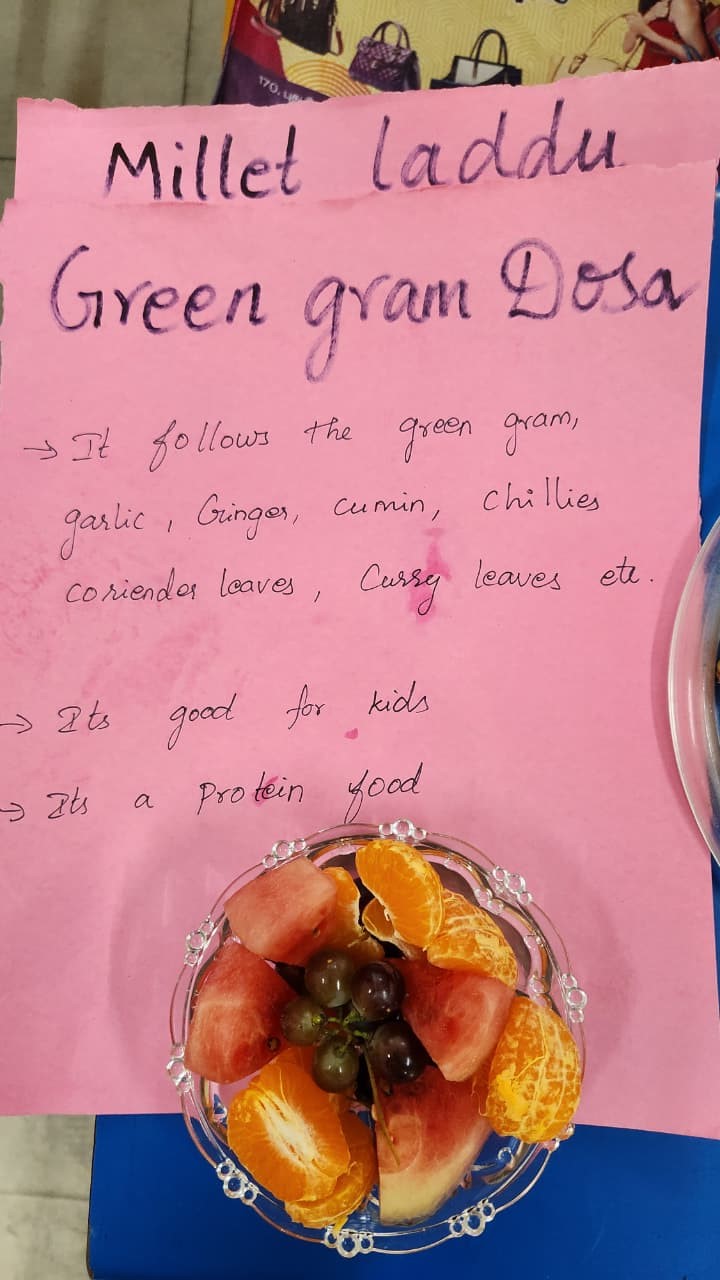 Millet laddu
Green gram Dosa
→ It follows the green gram,
garlic, Ginger, cumin, chillies
coriender leaves, Curry leaves etc.
→ Its good for kids
→ Its a protein food